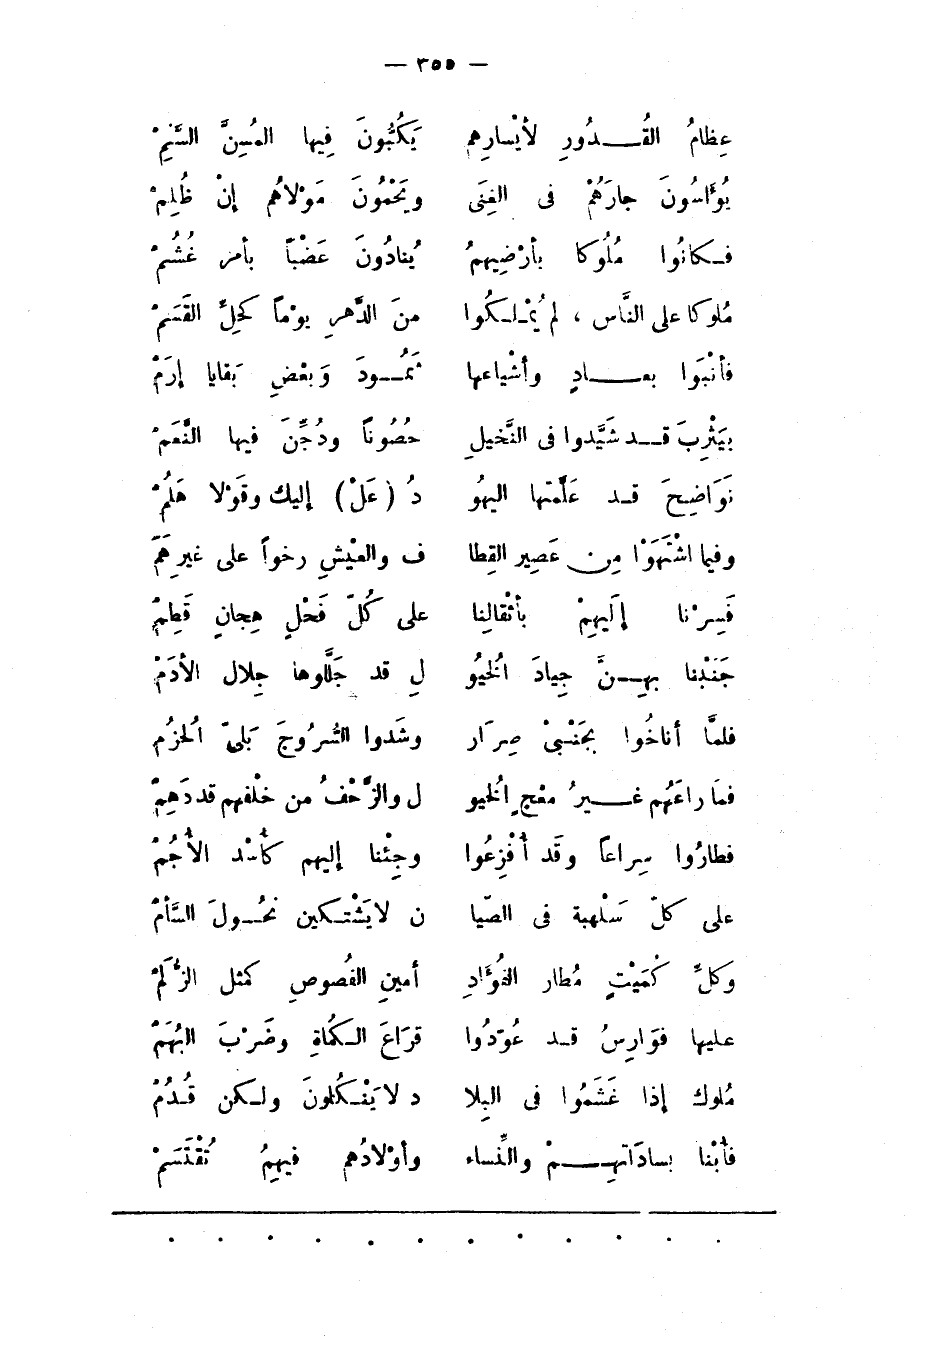 — ٣٥٥ —
عِظامُ القُـــدُورِ لأيْسارِهم يَكُبُّونَ فِيها المُسِنَّ السَّنِمْ
يُوَاسُونَ جارَهُمْ فى الغِنَى ويَحْمُونَ مَوْلاهُم إنْ ظُلِمْ
فـكانُوا مُلُوكا بأرْضِيهمُ يُنادُونَ غَضْباً بأمر غُشُمْ
مُلوكا على النَّاس ، لم يُمْـلـكُوا منَ الدَّهرِ يوْماً كَحِلِّ القَسَمْ
فأنْبَوا بعـــــادٍ وأشْياعها ثَمُــودَ وَبعْضِ بَقايا إرَمْ
بيَثْرِبَ قــد شَيَّدوا فى النَّخيلِ حُصُوناً ودُجِّنَ فيها النَّعَمْ
نَوَاضِحَ قـد عَلَّمتها اليهُو دُ ( عَلْ ) إليك وقَوْلا هَلُمْ
وفيما اشْتَهَوْا مِن عَصِير القِطا ف والعيْشِ رخواً على غيرِ هَمّ
فَسِرْنا إلَيهِمْ بأثْقالِنا على كُلّ فَحْلٍ هِجانٍ قَطِمْ
جَنَبْنا بهِــنَّ جِيادَ الخُيُو لِ قد جَلَّلوها جِلال الأدَمْ
فلمَّا أناخُوا بجَنْبىْ صِرَار وشَدوا السُّرُوجَ بَلىِّ الحُزُم
فمَا راعَهُم غـــيرُ معْجِ الخُيو ل والزَّحْفُ من خلْفهم قد دَهِمْ
فطارُوا سِراعاً وقَد أُفْزِعُوا وجِئْنا إليهم كأُسْد الأُجُمْ
على كلّ سَلْهبة فى الصّيا ن لا يَشْتـكين نحُــولَ السَّأمْ
وكلِّ كُمَيْتٍ مُطار الفُؤَادِ أمينِ الفُصوصِ كمثل الزُّلَمْ
عليها فوَارِسُ قـد عُوّدُوا قرَاعَ الـكُماةِ وضَرْبَ البُهَمْ
مُلوك إذا غَشَمُوا فى البِلا د لا يَنْـكُلونَ ولـكن قُدُمْ
فأُبْنا بسادَاتهِــــمْ والنِّساء وأوْلادُهم فيهِمُ تُقْتَسَمْ
. . . . . . . . . . . .